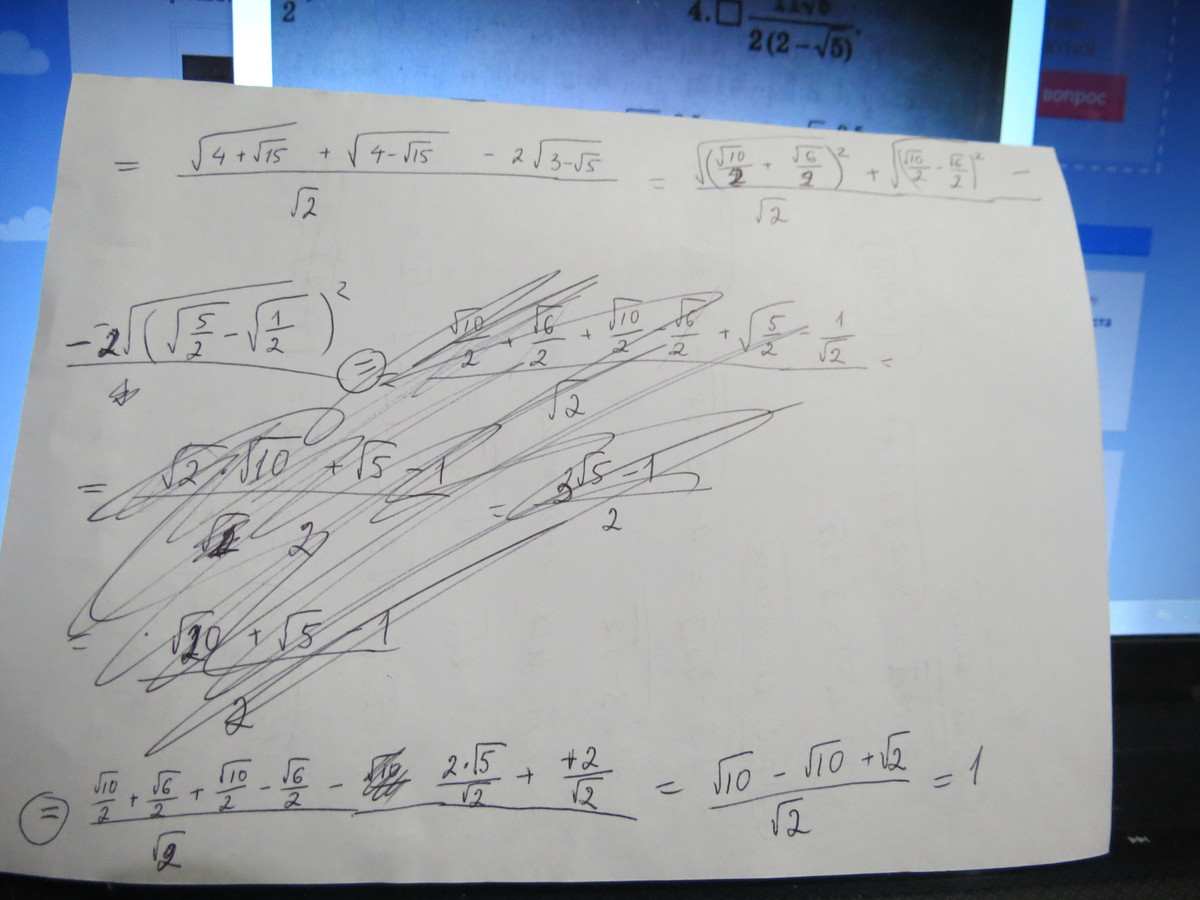 2
4. □ 11√5 / 2(2−√5),
вопрос
= (√(4+√15) + √(4−√15) − 2√(3−√5)) / √2 = (√((√10/2 + √6/2)²) + √((√10/2 − √6/2)²) −) / √2
−2√((√(5/2) − √(1/2))²) = (√10/2 + √6/2 + √10/2 − √6/2 + √(5/2) − 1/√2) / √2 =
= (√2·√10 + √5 − 1) / 2 = (3√5 − 1) / 2
= (√20 + √5 − 1) / 2
= (√10/2 + √6/2 + √10/2 − √6/2 − 2·√5/√2 + +2/√2) / √2 = (√10 − √10 + √2) / √2 = 1